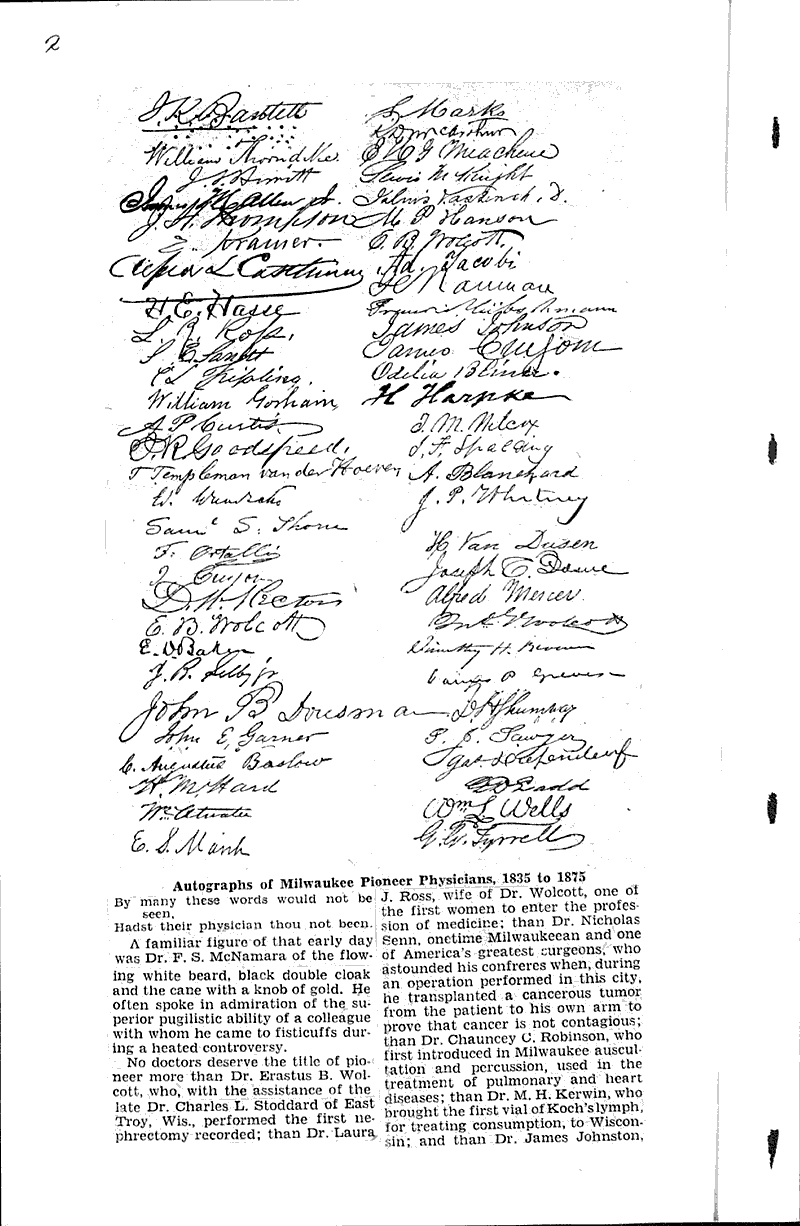 2
J. K. Bartlett
William Thorndike
J. H. Thompson
Kramer
H. E. Hasse
L. R. Ross.
William Gorham
A P Curtis
Goodspeed,
T Templeman van der Hoeven
Sam'l S. Thorn
D. W. Hector
E. B. Wolcott
E. D. Baker
J. B. Selby jr
John B Dousman
John E. Garner
C. Augustus Barlow
H. M. Hard
E. S. Marsh
S. Marks
Meachem
Lewis McKnight
M P Hanson
E. B. Wolcott,
Ad. Jacobi
James Johnson
James
Odelia Blinn.
H Harpke
T. M. Wilcox
Spalding
A. Blanchard
J. P. Whitney
H Van Dusen
Joseph
Alfred Mercer
Timothy H. Brown
James P Greves
Shumway
Sawyer
Wm L Wells
G. G. Tyrrell
Autographs of Milwaukee Pioneer Physicians, 1835 to 1875
By many these words would not be
seen,
Hadst their physician thou not been.
A familiar figure of that early day
was Dr. F. S. McNamara of the flow-
ing white beard, black double cloak
and the cane with a knob of gold. He
often spoke in admiration of the su-
perior pugilistic ability of a colleague
with whom he came to fisticuffs dur-
ing a heated controversy.
No doctors deserve the title of pio-
neer more than Dr. Erastus B. Wol-
cott, who, with the assistance of the
late Dr. Charles L. Stoddard of East
Troy, Wis., performed the first ne-
phrectomy recorded; than Dr. Laura
J. Ross, wife of Dr. Wolcott, one of
the first women to enter the profes-
sion of medicine; than Dr. Nicholas
Senn, onetime Milwaukeean and one
of America's greatest surgeons, who
astounded his confreres when, during
an operation performed in this city,
he transplanted a cancerous tumor
from the patient to his own arm to
prove that cancer is not contagious;
than Dr. Chauncey C. Robinson, who
first introduced in Milwaukee auscul-
tation and percussion, used in the
treatment of pulmonary and heart
diseases; than Dr. M. H. Kerwin, who
brought the first vial of Koch's lymph,
for treating consumption, to Wiscon-
sin; and than Dr. James Johnston,